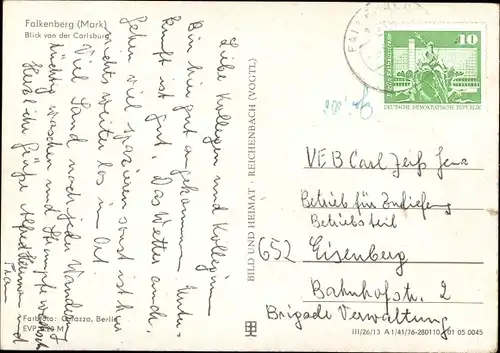 Falkenberg (Mark)
Blick von der Carlsburg
Liebe Kollegin und Kollegin
Bin hier gut angekommen Unter
kunft ist gut. Das Wetter auch.
gehen viel spazieren sonst ist hier
nichts weiter los im Ort
Viel Sand nach jeder Wanderung
tüchtig waschen und Strümpfe
Herzliche Grüße Alfred und
Frau
Farbfoto: Berlin
EVP M
BILD UND HEIMAT · REICHENBACH (VOGTL)
FALKENBERG
10
DEUTSCHE DEMOKRATISCHE REPUBLIK
VEB Carl Zeiß Jena
Betrieb für
Betriebsteil
652 Eisenberg
Bahnhofstr. 2
Brigade Verwaltung
III/26/13 A 1/41/76-280110 01 05 0045